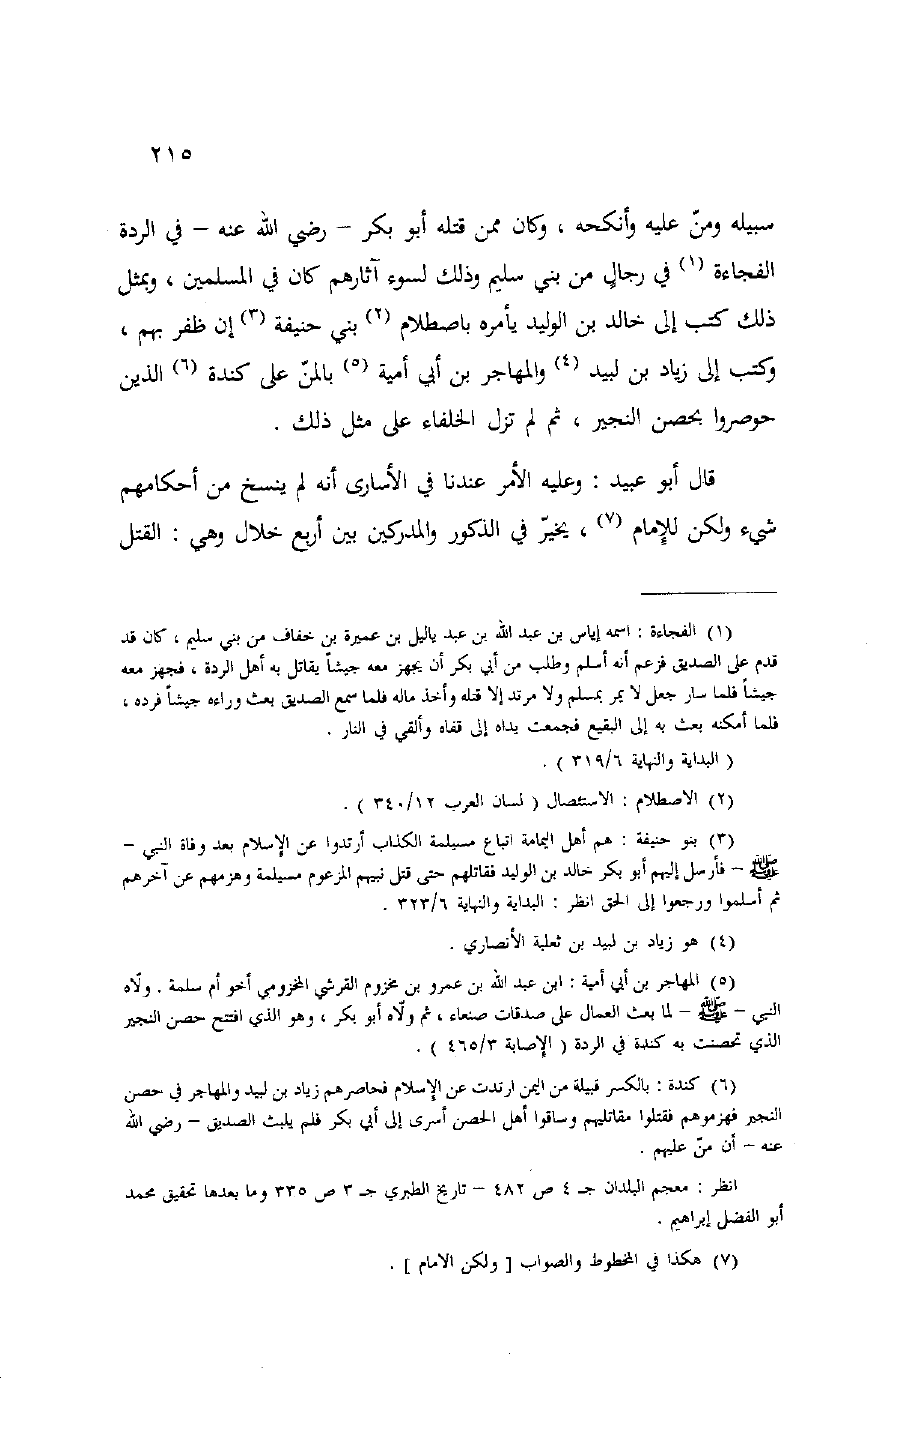 ٢١٥
سبيله ومنّ عليه وأنكحه ، وكان ممن قتله أبو بكر – رضي الله عنه – في الردة
الفجاءة (١) في رجالٍ من بني سليم وذلك لسوء آثارهم كان في المسلمين ، وبمثل
ذلك كتب إلى خالد بن الوليد يأمره باصطلام (٢) بني حنيفة (٣) إن ظفر بهم ،
وكتب إلى زياد بن لبيد (٤) والمهاجر بن أبي أمية (٥) بالمنّ على كندة (٦) الذين
حوصروا بحصن النجير ، ثم لم تزل الخلفاء على مثل ذلك .
قال أبو عبيد : وعليه الأمر عندنا في الأسارى أنه لم ينسخ من أحكامهم
شيء ولكن للإمام (٧) ، يخيّر في الذكور والمدركين بين أربع خلال وهي : القتل
(١) الفجاءة : اسمه إياس بن عبد الله بن عبد ياليل بن عميرة بن خفاف من بني سليم ، كان قد
قدم على الصديق فزعم أنه أسلم وطلب من أبي بكر أن يجهز معه جيشاً يقاتل به أهل الردة ، فجهز معه
جيشاً فلما سار جعل لا يمر بمسلم ولا مرتد إلا قتله وأخذ ماله فلما سمع الصديق بعث وراءه جيشاً فرده ،
فلما أمكنه بعث به إلى البقيع فجمعت يداه إلى قفاه وألقي في النار .
( البداية والنهاية ٣١٩/٦ ) .
(٢) الاصطلام : الاستئصال ( لسان العرب ٣٤٠/١٢ ) .
(٣) بنو حنيفة : هم أهل اليمامة اتباع مسيلمة الكذاب أرتدوا عن الإسلام بعد وفاة النبي –
ﷺ – فأرسل إليهم أبو بكر خالد بن الوليد فقاتلهم حتى قتل نبيهم المزعوم مسيلمة وهزمهم عن آخرهم
ثم أسلموا ورجعوا إلى الحق انظر : البداية والنهاية ٣٢٣/٦ .
(٤) هو زياد بن لبيد بن ثعلبة الأنصاري .
(٥) المهاجر بن أبي أمية : ابن عبد الله بن عمرو بن مخزوم القرشي المخزومي أخو أم سلمة . ولّاه
النبي – ﷺ – لما بعث العمال على صدقات صنعاء ، ثم ولّاه أبو بكر ، وهو الذي افتتح حصن النجير
الذي تحصنت به كندة في الردة ( الإصابة ٤٦٥/٣ ) .
(٦) كندة : بالكسر قبيلة من اليمن ارتدت عن الإسلام فحاصرهم زياد بن لبيد والمهاجر في حصن
النجير فهزموهم فقتلوا مقاتليهم وساقوا أهل الحصن أسرى إلى أبي بكر فلم يلبث الصديق – رضي الله
عنه – أن منّ عليهم .
انظر : معجم البلدان جـ ٤ ص ٤٨٢ – تاريخ الطبري جـ ٣ ص ٣٣٥ وما بعدها تحقيق محمد
أبو الفضل إبراهيم .
(٧) هكذا في المخطوط والصواب [ ولكن الامام ] .